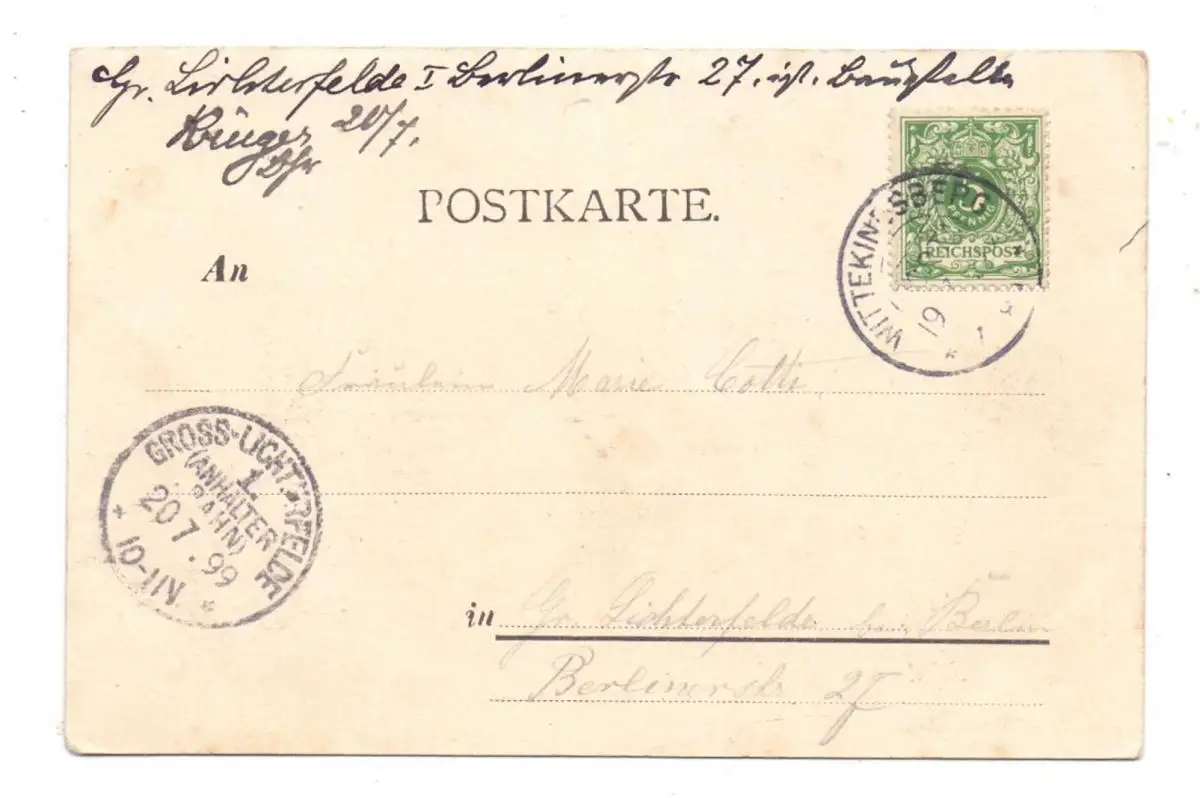 Gr. Lichterfelde I Berlinerstr 27. ist Baustelle
20/7.
POSTKARTE.
PFENNIG
REICHSPOST
WITTEKINDSBERG
19
An
Fräulein Marie
GROSS-LICHTERFELDE
1.
(ANHALTER
BAHN)
20 7.99
10-11N.
in Gr. Lichterfelde bei Berlin
Berlinerstr. 27